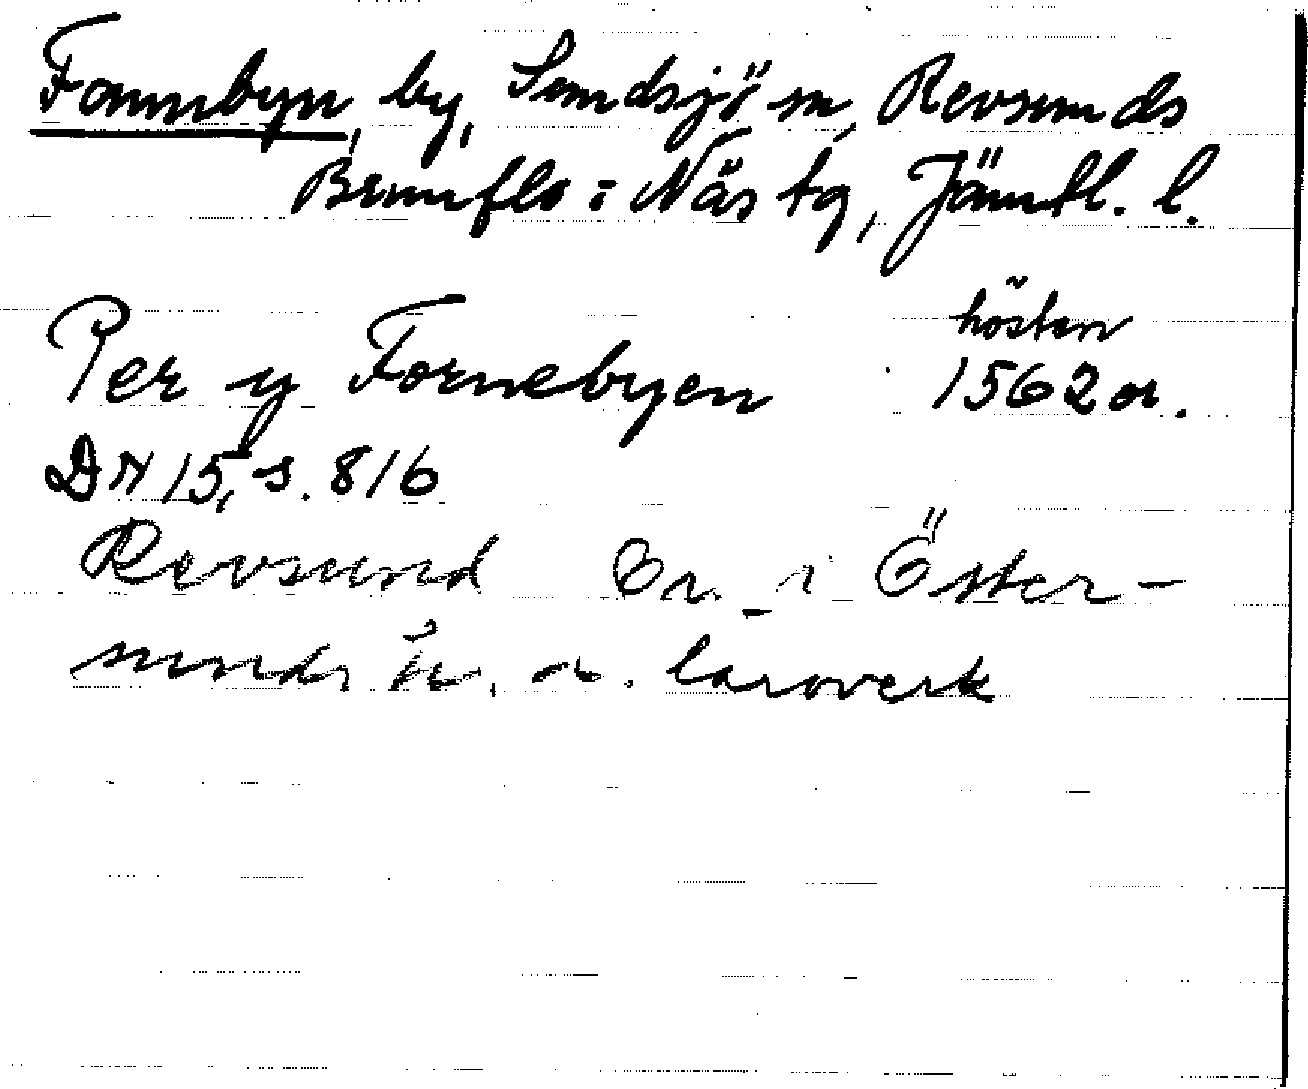 Fannbyn, by, Sundsjö sn, Revsunds
Brunflo i Näs tg, Jämtl. l.
Per y Fornebyen
hösten
1562 or.
DN 15, s. 816
Revsund Or. i Öster-
sunds h. a. läroverk